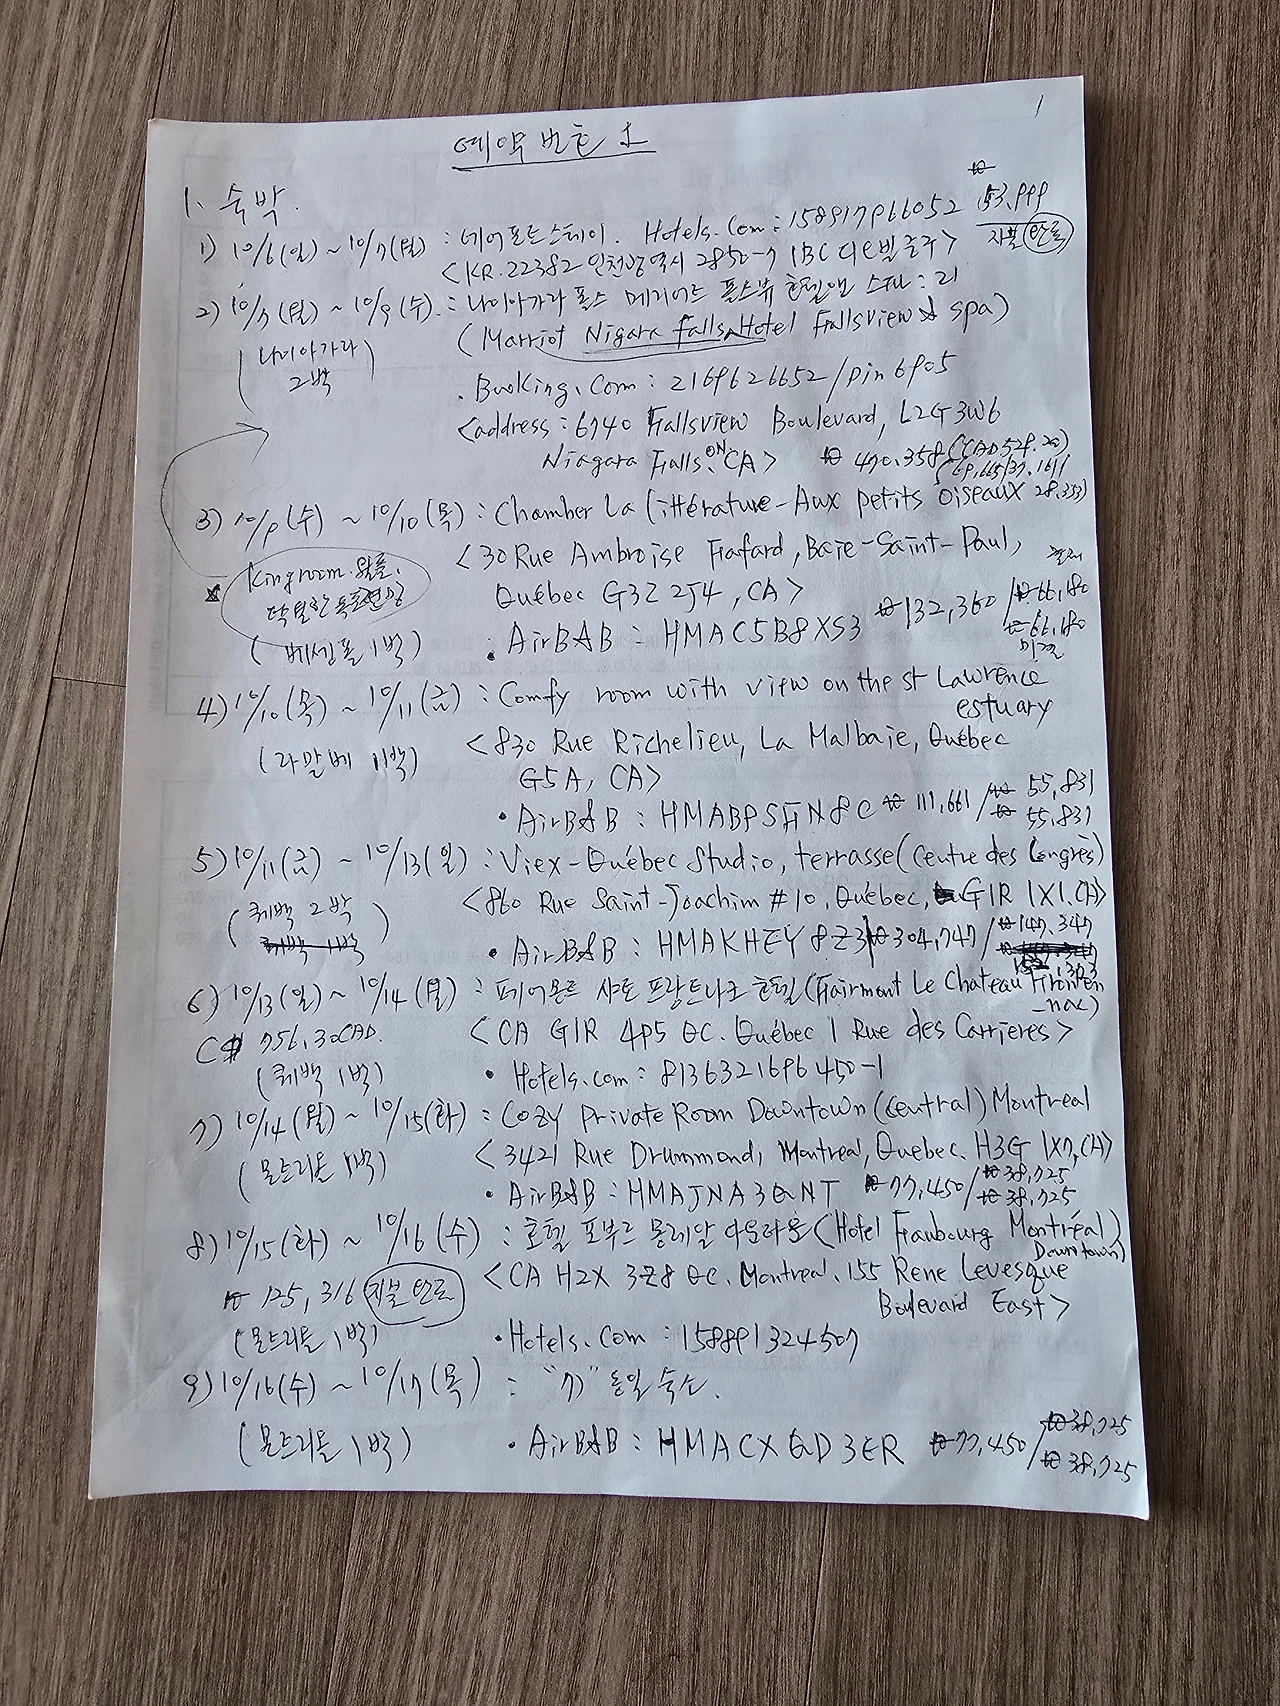 1
예약번호
1. 숙박.
1) 10/6(일) ~ 10/7(월) : 에어포트스테이. Hotels.com : 158917966052 ₩ 53,999
<KR. 22382 인천광역시 2850-7 IBC 디오빌 공주> 지불 완료
2) 10/7(월) ~ 10/9(수) : 나이아가라 폴스 메리어트 폴스뷰 호텔앤 스파 : 21
(나이아가라 2박) (Marriot Nigara Falls Hotel Fallsview & spa)
. Booking.com : 2169626652/pin 6905
<address : 6740 Fallsview Boulevard, L2G 3W6
Niagara Falls, ON CA> ₩ 470.358 (CAD 528.20)
3) 10/9(수) ~ 10/10(목) : Chamber La Littérature-Aux petits Oiseaux 28.353)
<30 Rue Ambroise Fafard, Baie-Saint-Paul,
Kingroom
Québec G3Z 2J4, CA>
(베생폴 1박) . AirB&B : HMAC5B8XS3 ₩132,360 / ₩66,180
₩66,180
미결
4) 10/10(목) ~ 10/11(금) : Comfy room with view on the st Lawrence
estuary
(라말베 1박) <830 Rue Richelieu, La Malbaie, Québec
G5A, CA>
• AirB&B : HMABPSHN8C ₩ 111,661 / ₩ 55,831
₩ 55,831
5) 10/11(금) ~ 10/13(일) : Viex-Québec Studio, terrasse (Centre des Congrès)
(퀘백 2박) <860 Rue Saint-Joachim #10, Québec, G1R 1X1, CA>
퀘백 1박
• AirB&B : HMAKHEY8Z3 ₩ 304,747 / ₩ 147,347
6) 10/13(일) ~ 10/14(월) : 페어몬트 샤토 프랑트나크 호텔 (Fairmont Le Chateau Fronten
-nac)
C$ 756,30CAD. <CA G1R 4P5 QC. Québec 1 Rue des Carrieres>
(퀘백 1박) • Hotels.com : 8136321696450-1
7) 10/14(월) ~ 10/15(화) : Cozy Private Room Downtown (Central) Montreal
(몬트리올 1박) <3421 Rue Drummond, Montreal, Quebec, H3G 1X7, CA>
• AirB&B : HMAJNA3QNT ₩ 77,450 / ₩ 38,725
₩ 38,725
8) 10/15(화) ~ 10/16(수) : 호텔 포부르 몽레알 다운타운 (Hotel Faubourg Montréal
Downtown)
₩ 125,316 지불 완료 <CA H2X 3Z8 QC. Montreal. 155 Rene Levesque
Boulevard East>
(몬트리올 1박) • Hotels.com : 158891324507
9) 10/16(수) ~ 10/17(목) : "7)" 동일 숙소.
(몬트리올 1박) • AirB&B : HMACXQD3ER ₩77,450 / ₩38,725
₩ 38,725